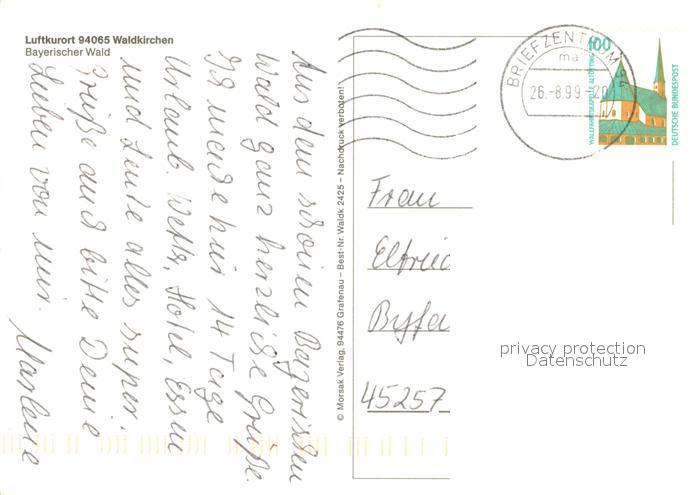 Luftkurort 94065 Waldkirchen
Bayerischer Wald
Aus dem schönen Bayerischen
Wald ganz herzliche Grüße.
Ich mache hier 14 Tage
Urlaub. Wetter, Hotel, Essen
und Leute alles super.
Grüße auch bitte Deine
Lieben von mir. Marlene
© Morsak Verlag, 94476 Grafenau – Best-Nr. Waldk 2425 – Nachdruck verboten!
BRIEFZENTRUM 94
ma
26.-8.99.-20
100
WALLFAHRTSKAPELLE ALTÖTTING
DEUTSCHE BUNDESPOST
Frau
Elfried
45257
privacy protection
Datenschutz